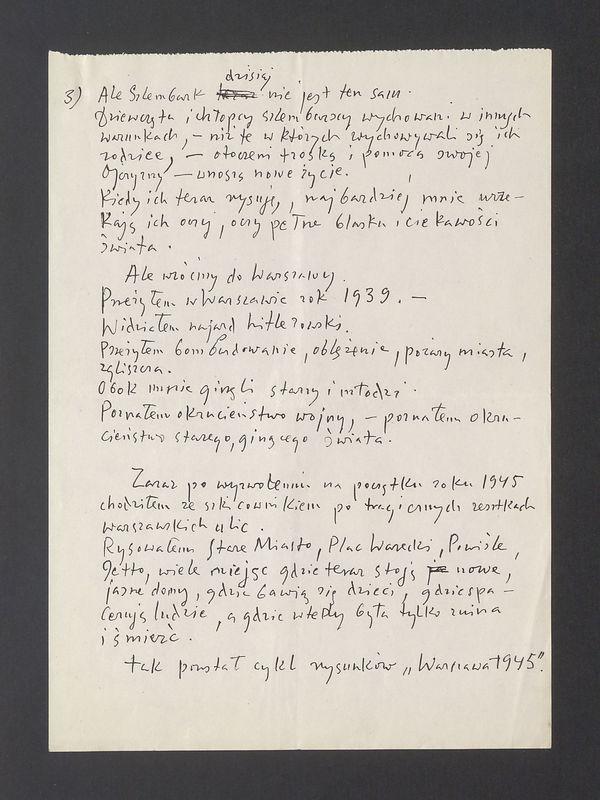 dzisiaj
3) Ale Szlembark teraz nie jest ten sam.
Dziewczęta i chłopcy szlembarscy wychowani w innych
warunkach, – niż te w których wychowywali się ich
rodzice, – otoczeni troską i pomocą swojej
Ojczyzny – wnoszą nowe życie.
Kiedy ich teraz rysuję, najbardziej mnie urze-
kają ich oczy, oczy pełne blasku i ciekawości
świata.
Ale wróćmy do Warszawy.
Przeżyłem w Warszawie rok 1939. –
Widziałem najazd hitlerowski.
Przeżyłem bombardowanie, oblężenie, pożary miasta,
zgliszcza.
Obok mnie ginęli starzy i młodzi.
Poznałem okrucieństwo wojny, – poznałem okru-
cieństwo starego, ginącego świata.
Zaraz po wyzwoleniu na początku roku 1945
chodziłem ze szkicownikiem po tragicznych resztkach
warszawskich ulic.
Rysowałem Stare Miasto, Plac Warecki, Powiśle,
Getto, wiele miejsc gdzie teraz stoją ja nowe,
jasne domy, gdzie bawią się dzieci, gdzie spa-
cerują ludzie, a gdzie wtedy była tylko ruina
i śmierć.
tak powstał cykl rysunków „Warszawa 1945".